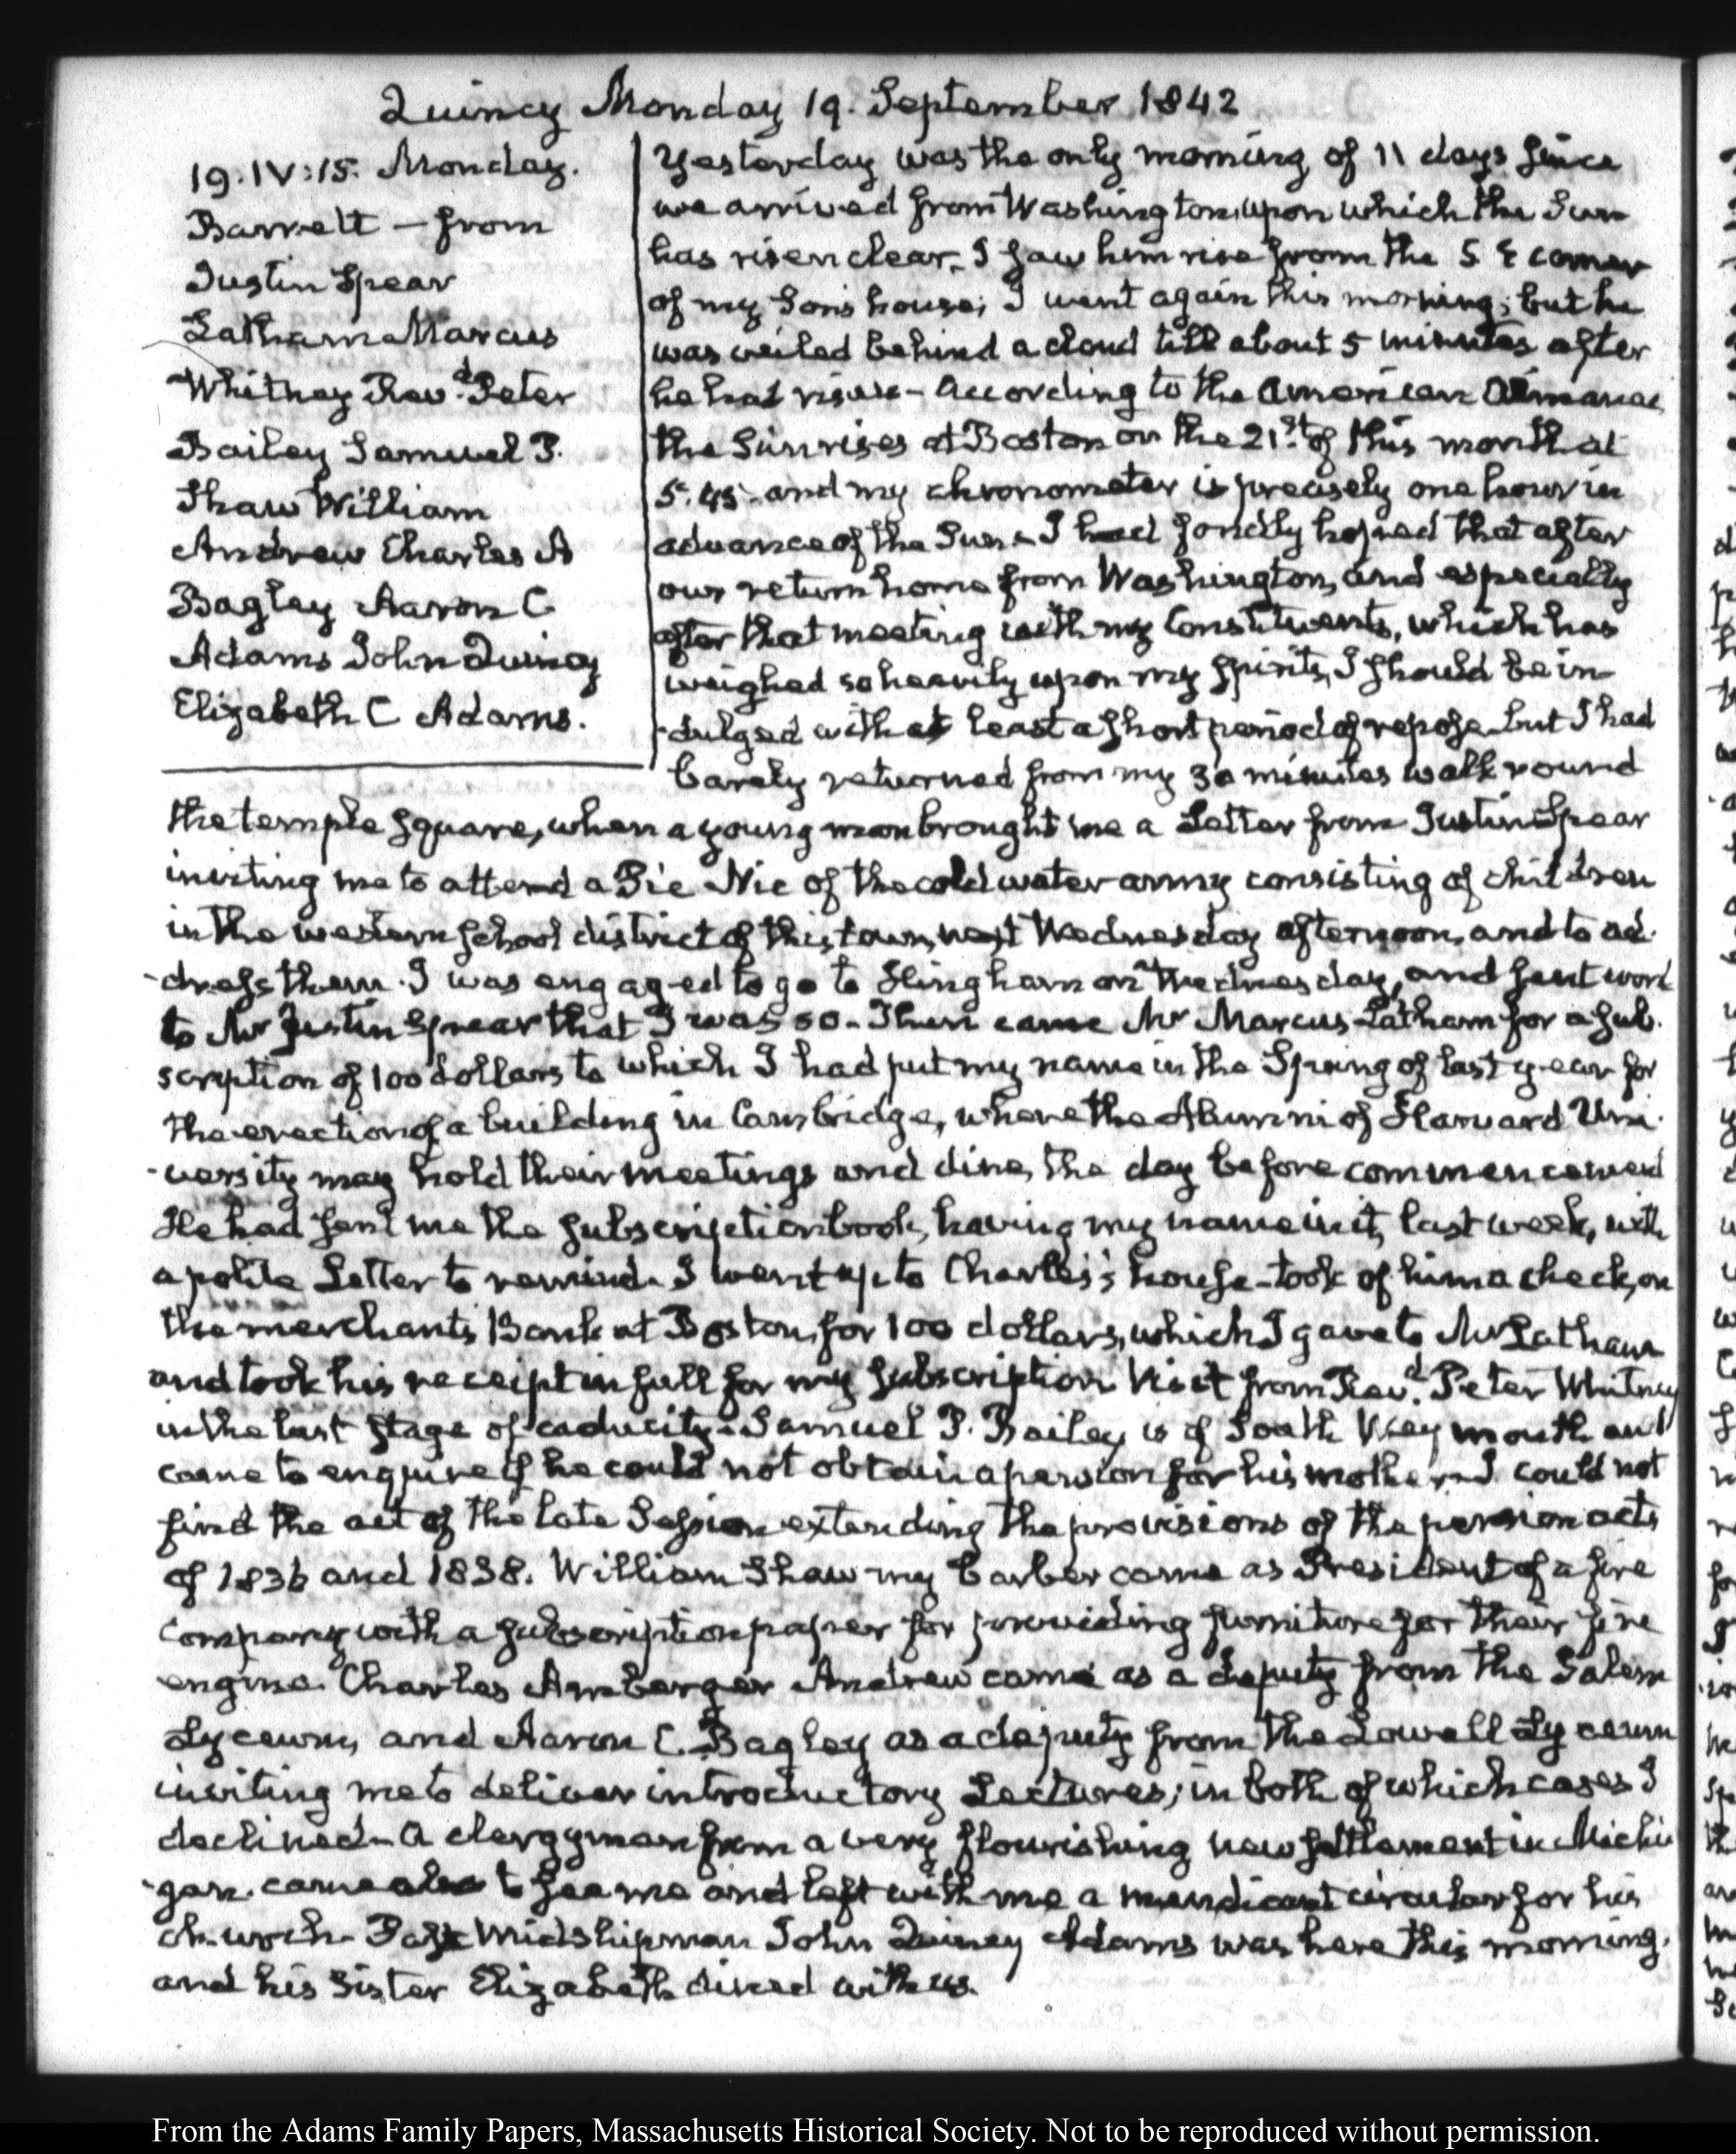 Quincy Monday 19. September 1842
19. IV:15. Monday.
Barrett — from
Justin Spear
Latham Marcus
Whitney Revd. Peter
Bailey Samuel P.
Shaw William
Andrew Charles A
Bagley Aaron C
Adams John Quincy
Elizabeth C Adams.
Yesterday was the only morning of 11 days since
we arrived from Washington, upon which the Sun
has risen clear. I saw him rise from the S E corner
of my Son's house; I went again this morning; but he
was veiled behind a cloud till about 5 minutes after
he had risen – According to the American Almanac
the Sun rises at Boston on the 21st. of this month at
5.45 – and my chronometer is precisely one hour in
advance of the Sun – I had fondly hoped that after
our return home from Washington, and especially
after that meeting with my Constituents, which has
weighed so heavily upon my Spirits, I should be in-
-dulged with at least a short period of repose – but I had
barely returned from my 30 minutes walk round
the temple square, when a young man brought me a Letter from Justin Spear
inviting me to attend a Pic Nic of the cold water army consisting of children
in the western school district of this town, next Wednesday afternoon, and to ad-
-dress them. I was engaged to go to Hingham on Wednesday, and sent word
to Mr Justin Spear that I was so – Then came Mr Marcus Latham for a sub-
scription of 100 dollars to which I had put my name in the Spring of last year for
the erection of a building in Cambridge, where the Alumni of Harvard Uni-
-versity may hold their meetings and dine, the day before commencement
He had sent me the subscription book, having my name in it, last week, with
a polite Letter to remind – I went up to Charles's house – took of him a check, on
the merchants Bank at Boston, for 100 dollars, which I gave to Mr Latham
and took his receipt in full for my subscription Visit from Revd. Peter Whitney
in the last stage of caducity – Samuel P. Bailey is of South Weymouth and
came to enquire if he could not obtain a pension for his mother – I could not
find the act of the late Session extending the provisions of the pension acts
of 1836 and 1838. William Shaw my barber came as President of a fire
company with a subscription paper for providing furniture for their fire
engine. Charles Amberger Andrew came as a deputy from the Salem
Lyceum, and Aaron C. Bagley as a deputy from the Lowell Lyceum
inviting me to deliver introductory Lectures; in both of which cases I
declined – A clergyman from a very flourishing new settlement in Michi
-gan came also to see me and left with me a mendicant circular for his
church – Past Midshipman John Quincy Adams was here this morning.
and his Sister Elizabeth dined with us.
From the Adams Family Papers, Massachusetts Historical Society. Not to be reproduced without permission.